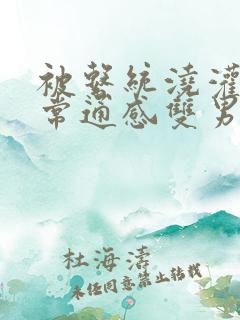 被繫統澆灌
常通感雙男
杜海濤
未經同意禁止轉載